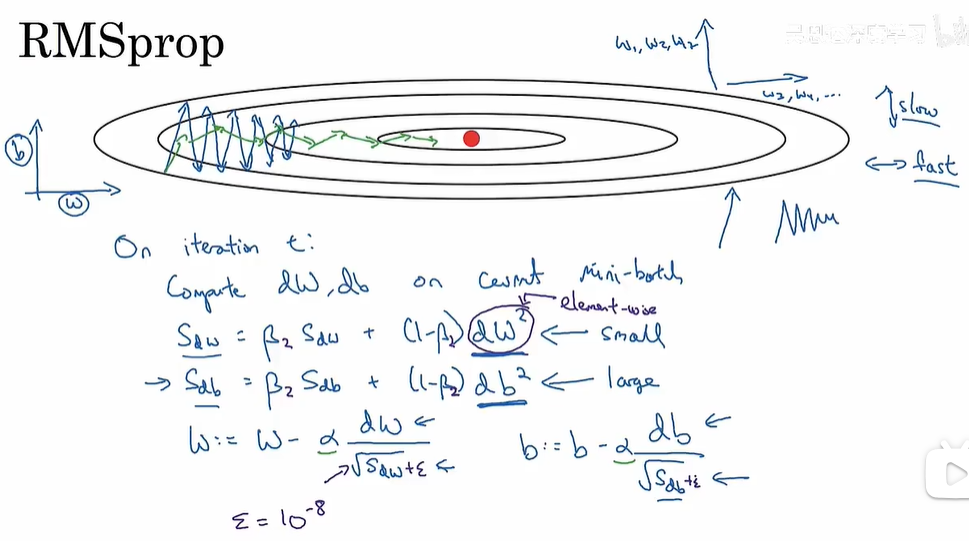 RMSprop
w₁, w₂, w₇
w₃, w₄, ...
slow
fast
b
w
On iteration t:
Compute dW, db on current mini-batch
element-wise
S_dw = β₂ S_dw + (1-β₂) dW² ← small
→ S_db = β₂ S_db + (1-β₂) db² ← large
W := W - α dW / √S_dw + ε ←
b := b - α db / √S_db + ε ←
ε = 10⁻⁸